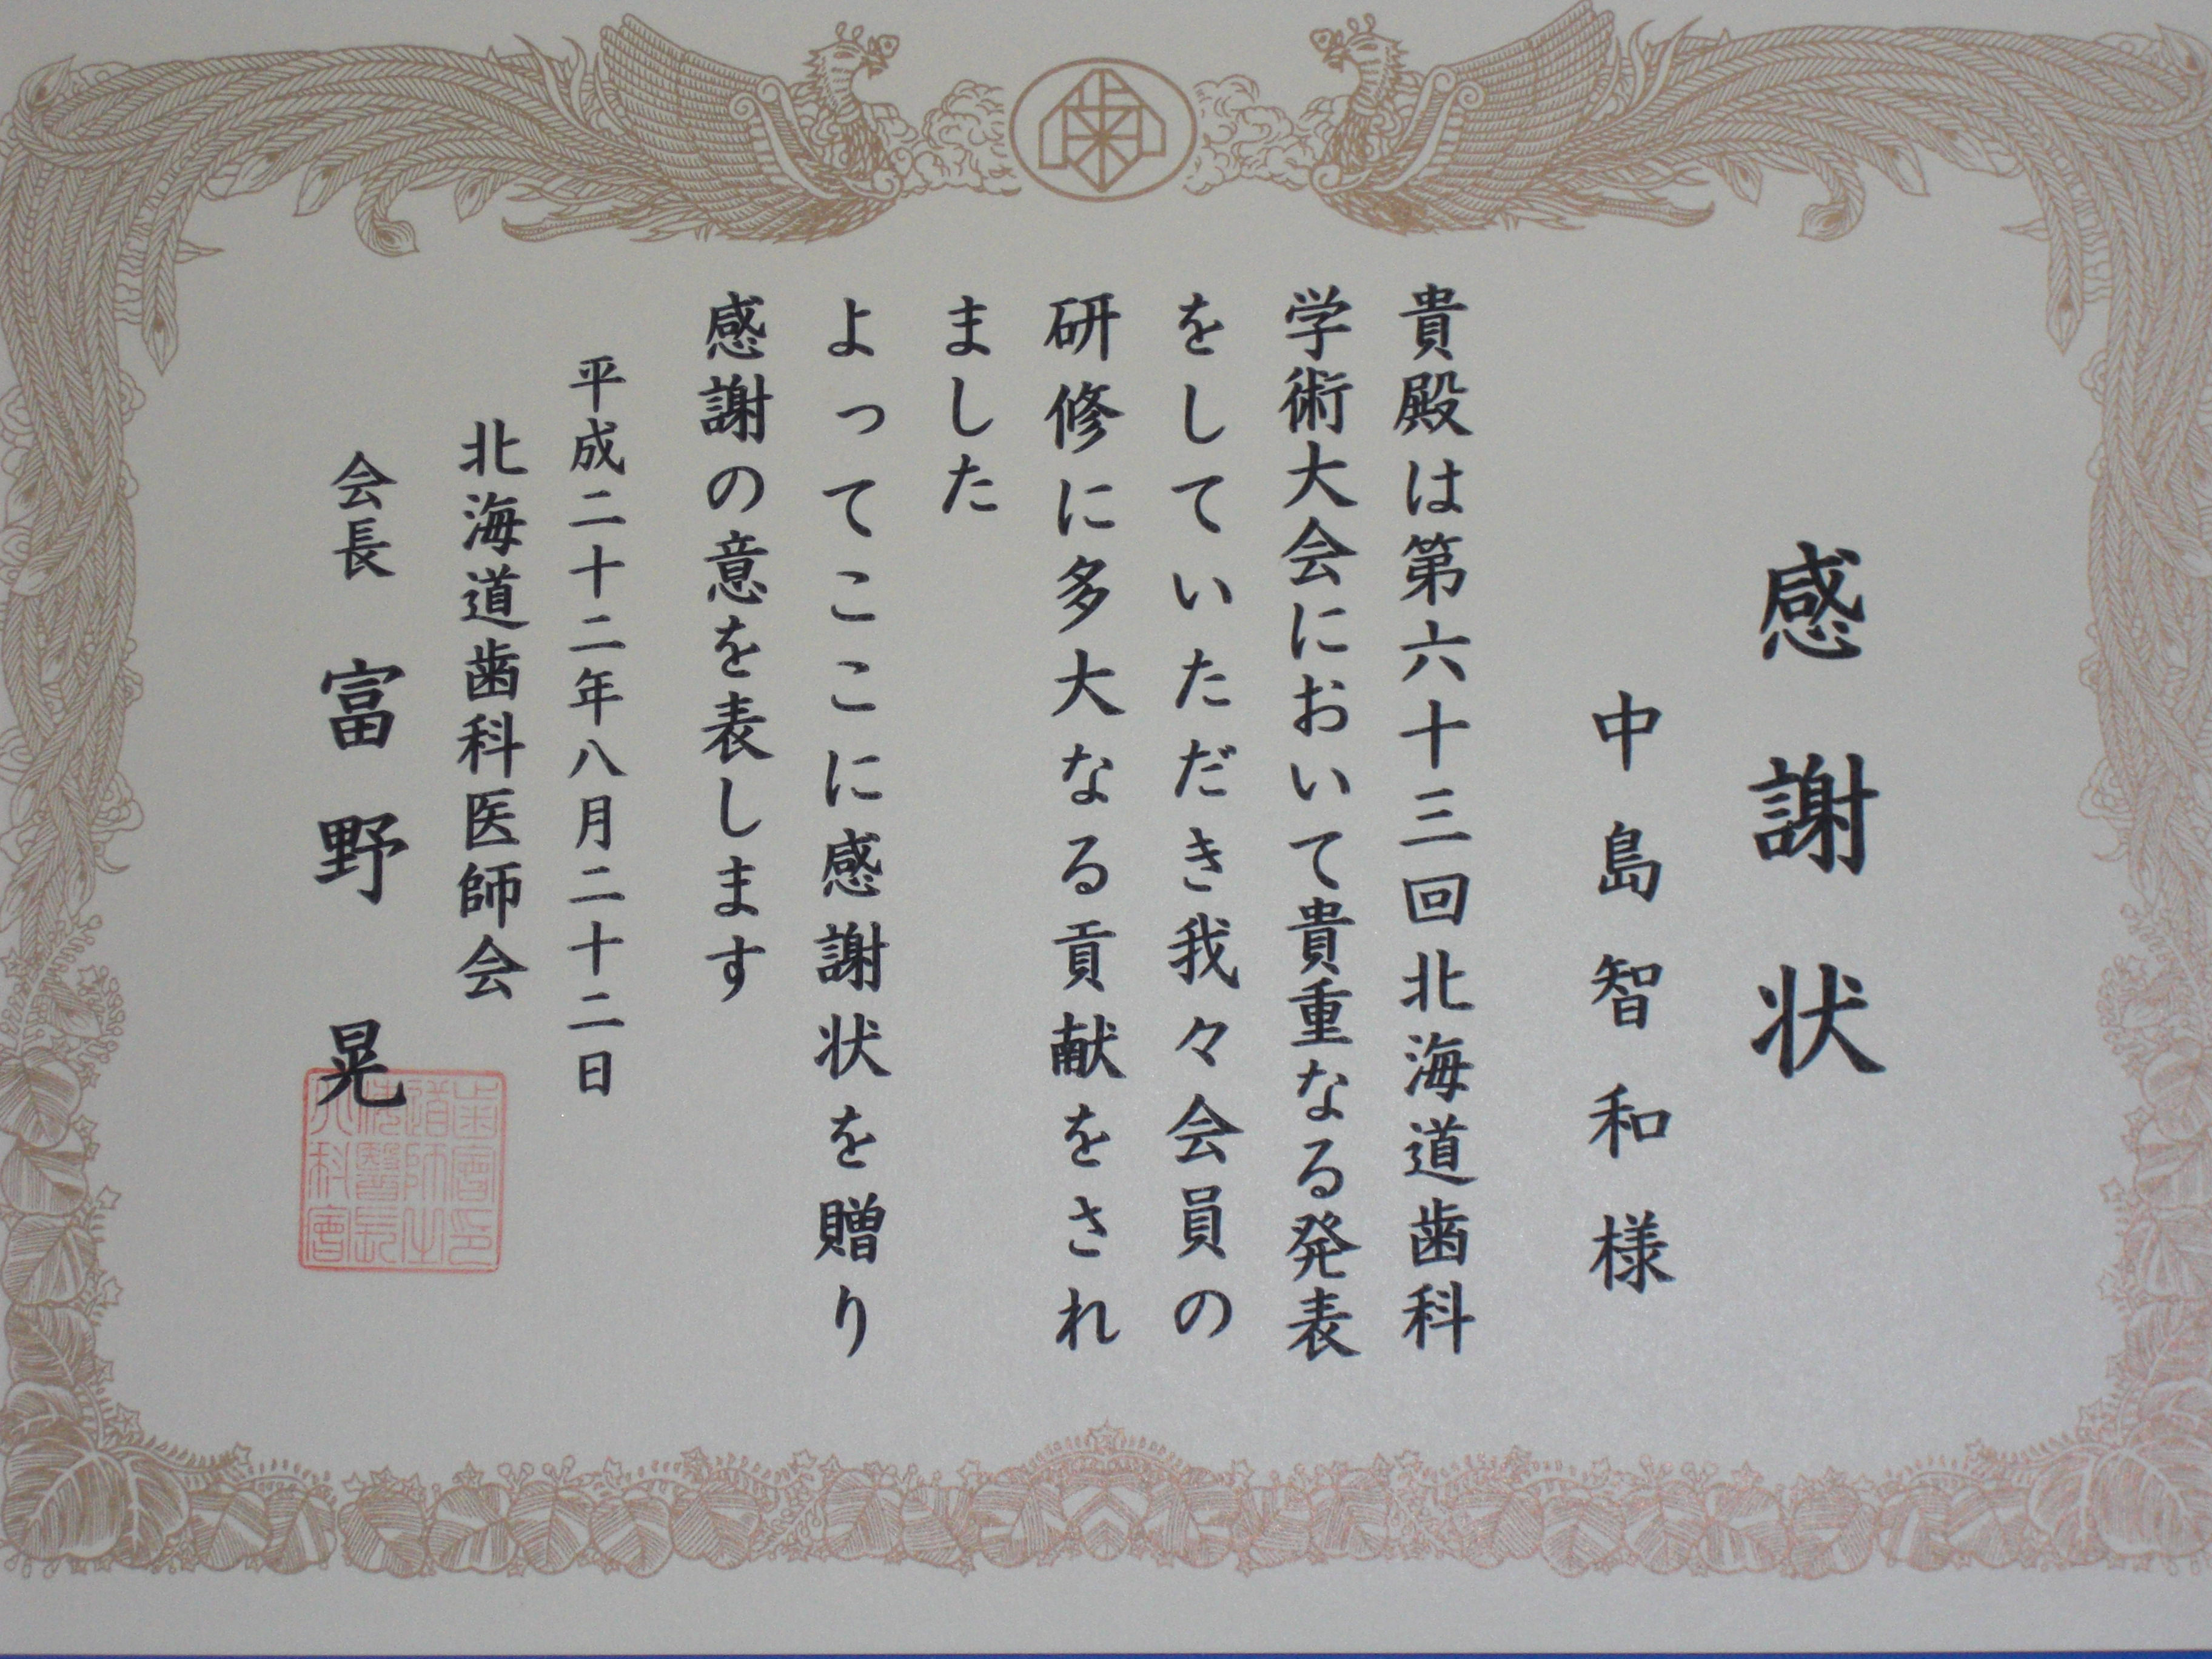 感謝状
中島智和様
貴殿は第六十三回北海道歯科
学術大会において貴重なる発表
をしていただき我々会員の
研修に多大なる貢献をされ
ました
よってここに感謝状を贈り
感謝の意を表します
平成二十二年八月二十二日
北海道歯科医師会
会長 富野 晃